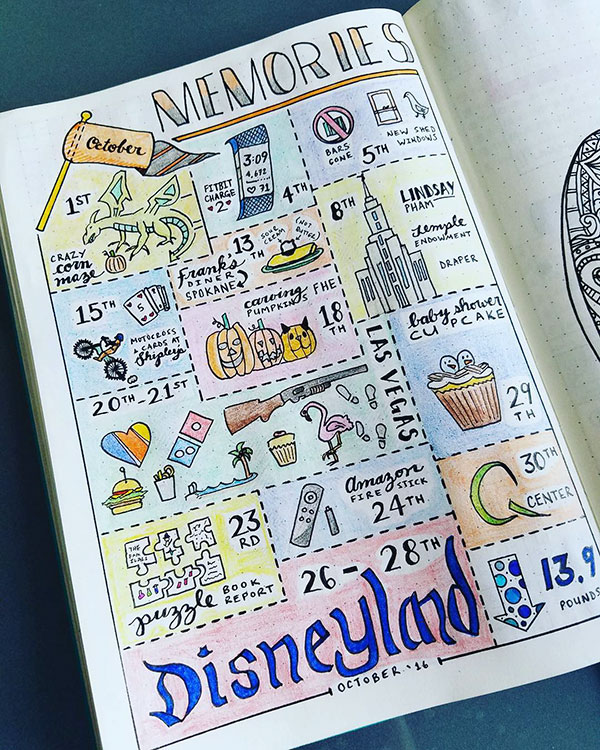 MEMORIES
October
1ST
CRAZY
corn
maze
FITBIT
CHARGE
2
4TH
3:09
4,672
71
BARS
GONE
5TH
NEW SHED
WINDOWS
8TH
LINDSAY
PHAM
temple
ENDOWMENT
DRAPER
13
TH
SOUR
CREAM
(NOT
BUTTER)
Frank's
DINER
SPOKANE
15TH
5
MOTOCROSS
& CARDS AT
Shipley's
carving
PUMPKINS FHE
18
TH
20TH-21ST
LAS VEGAS
baby shower
CUPCAKE
29
TH
Amazon
FIRE STICK
24TH
30TH
Q CENTER
23
RD
puzzle
BOOK
REPORT
26-28TH
Disneyland
OCTOBER '16
13.9
POUNDS